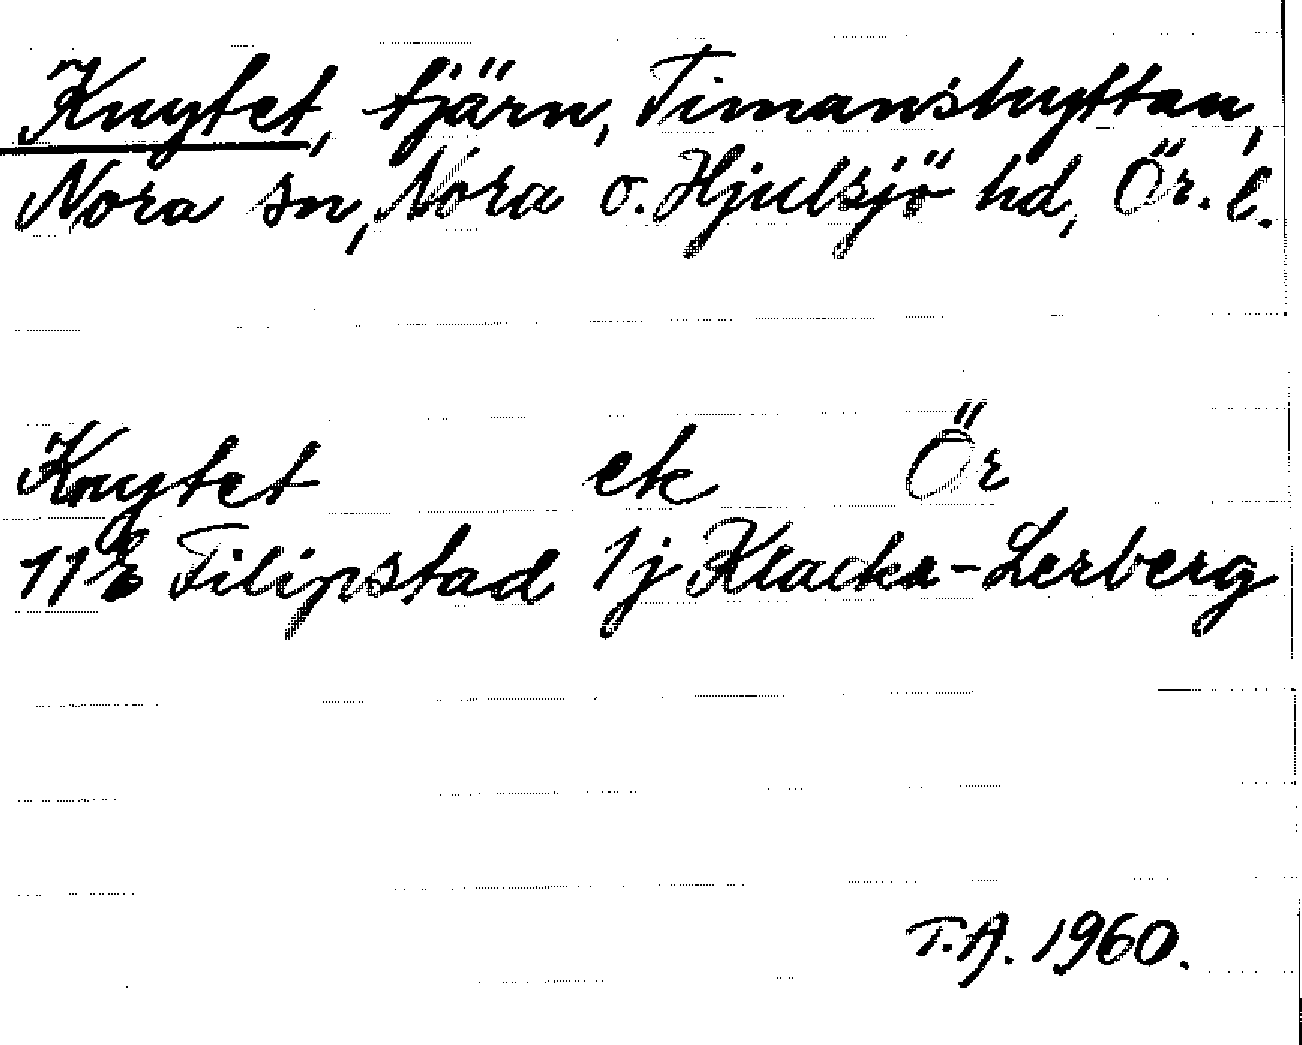 Knytet, tjärn, Timanshyttan,
Nora sn, Nora o. Hjulsjö hd, Ör. l.
Knytet ek Ör
11E Filipstad 1j Klacka-Lerberg
T.A. 1960.